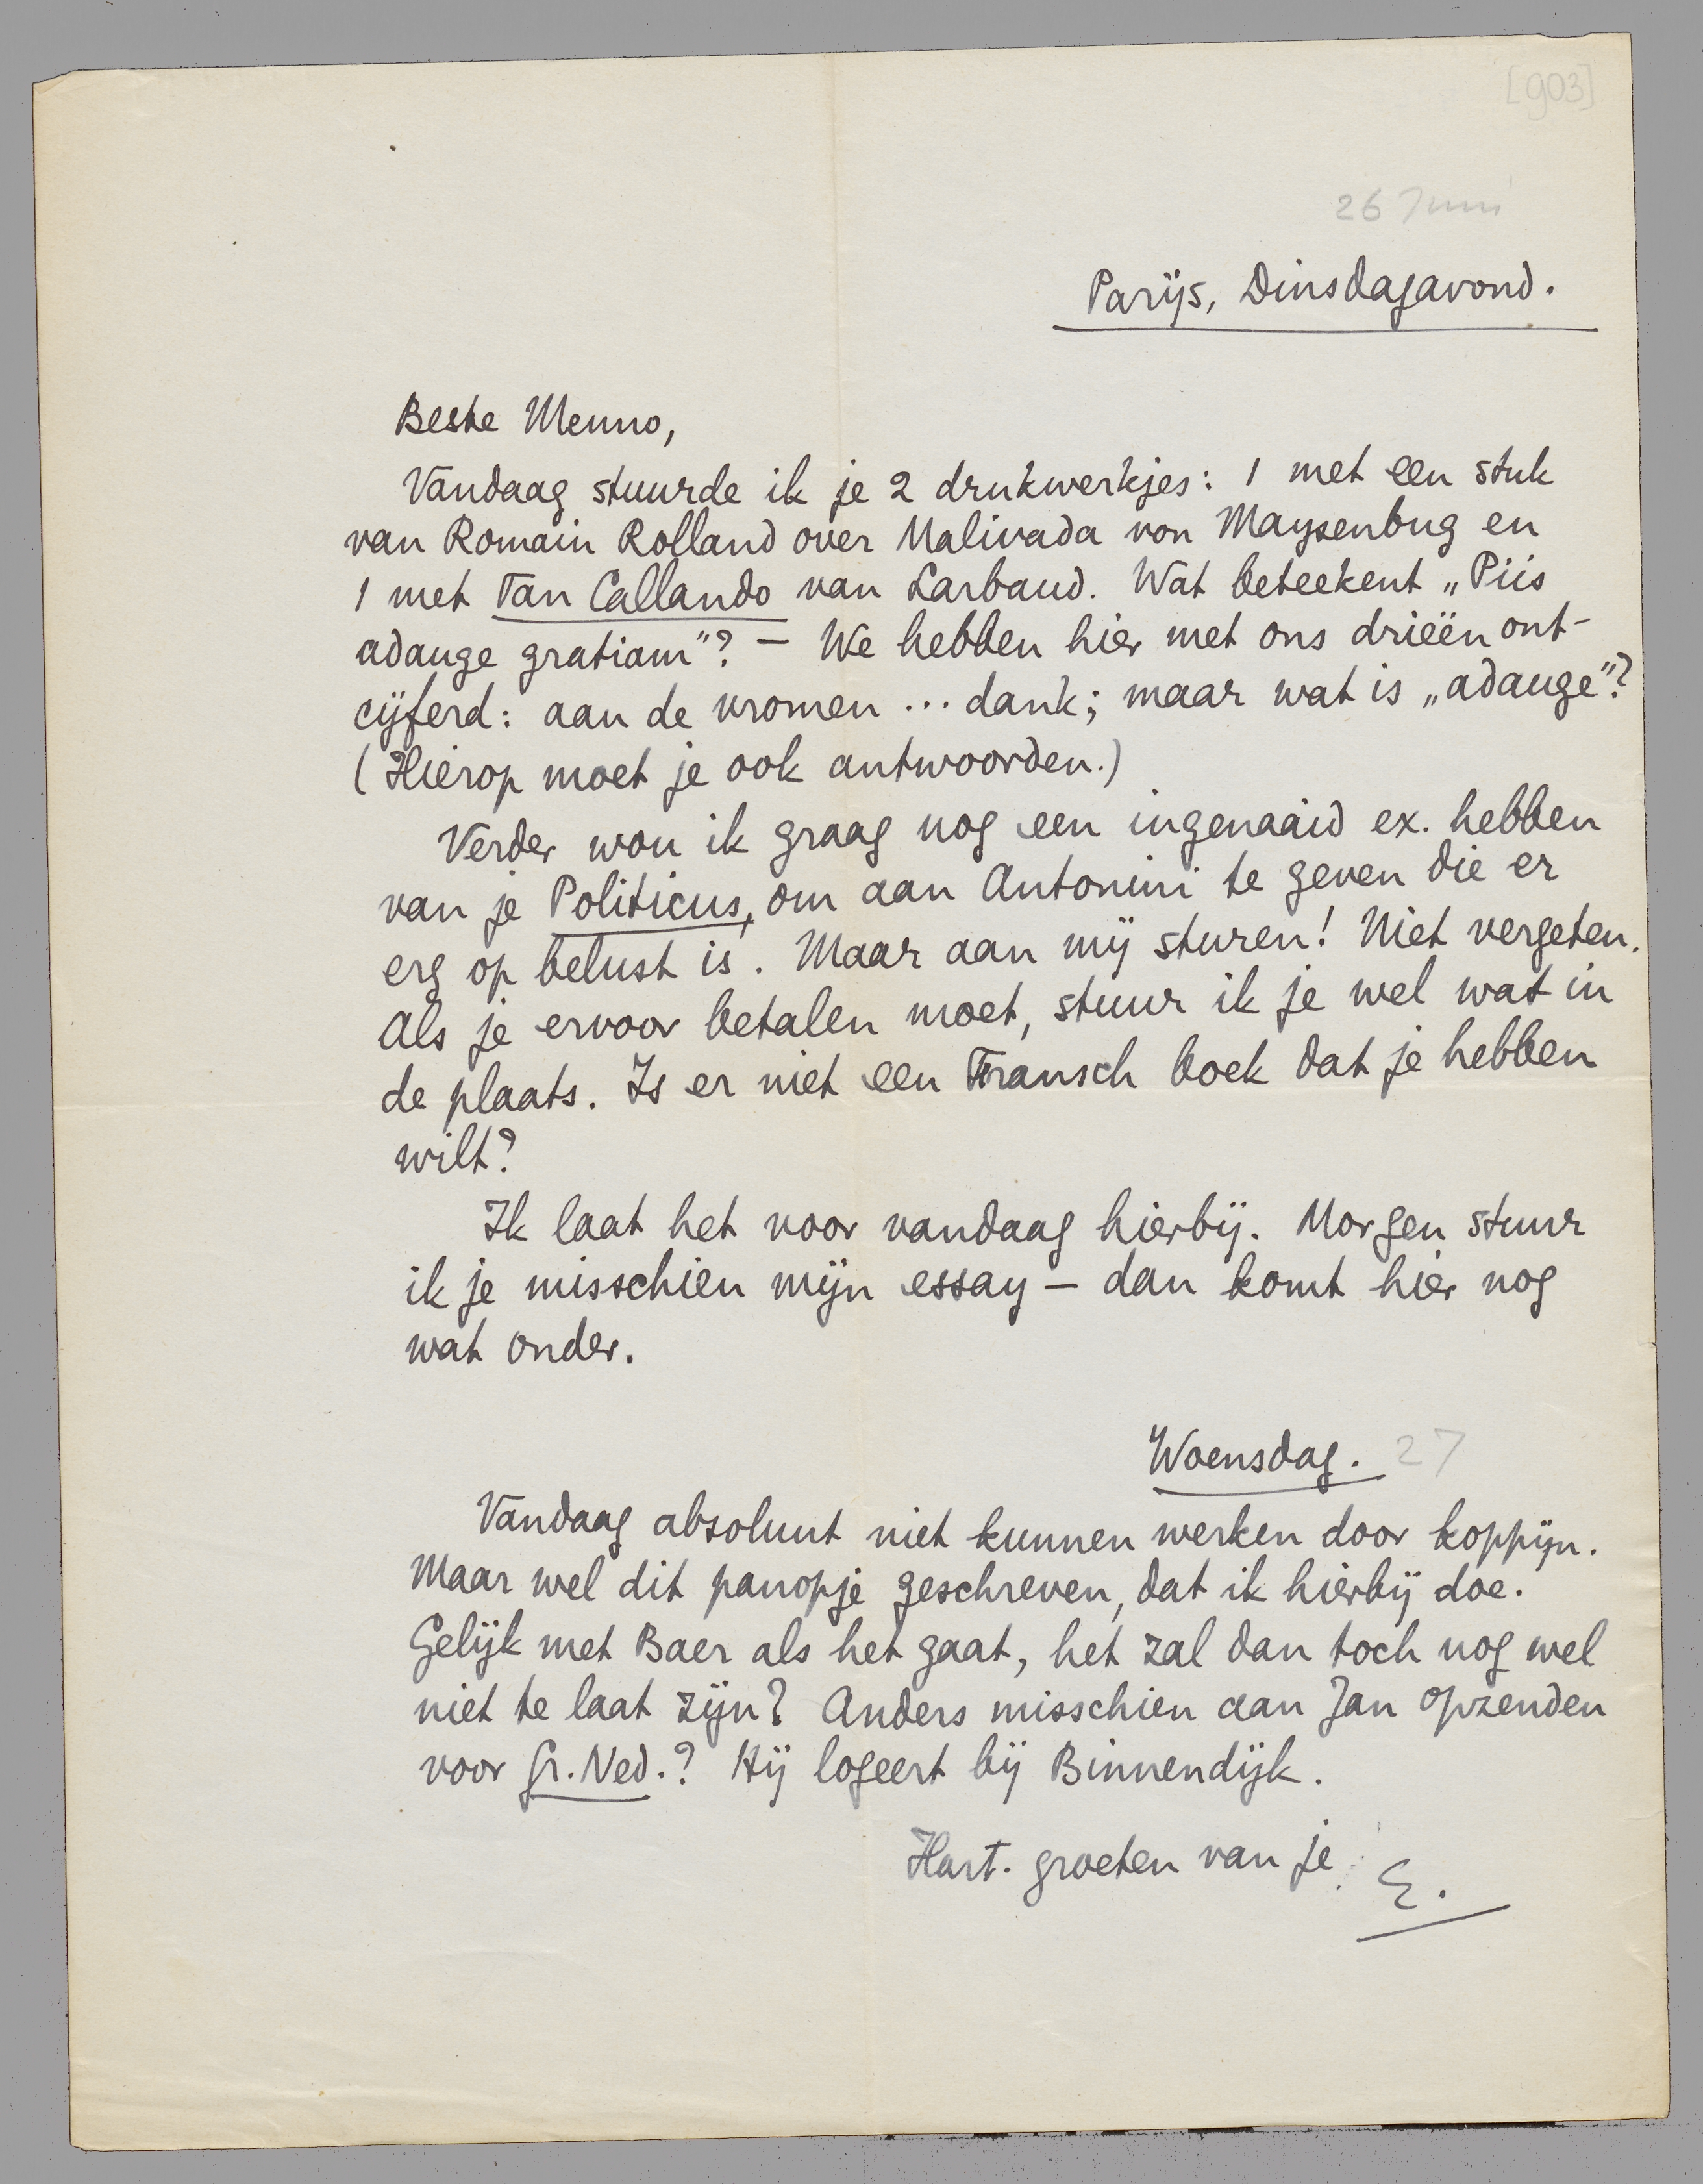 [903]
26 Juni
Parijs, Dinsdagavond.
Beste Menno,
Vandaag stuurde ik je 2 drukwerkjes: 1 met een stuk
van Romain Rolland over Malivada von Maysenbug en
1 met Tan Callando van Larbaud. Wat beteekent „Piis
adauge gratiam"? — We hebben hier met ons drieën ont-
cijferd: aan de vromen ... dank; maar wat is „adauge"?
(Hierop moet je ook antwoorden.)
Verder wou ik graag nog een ingenaaid ex. hebben
van je Politicus, om aan Antonini te geven die er
erg op belust is. Maar aan mij sturen! Niet vergeten.
Als je ervoor betalen moet, stuur ik je wel wat in
de plaats. Is er niet een Fransch boek dat je hebben
wilt?
Ik laat het voor vandaag hierbij. Morgen stuur
ik je misschien mijn essay — dan komt hier nog
wat onder.
Woensdag. 27
Vandaag absoluut niet kunnen werken door koppijn.
Maar wel dit panopje geschreven, dat ik hierbij doe.
Gelijk met Baer als het gaat, het zal dan toch nog wel
niet te laat zijn? Anders misschien aan Jan opzenden
voor Gr. Ned.? Hij logeert bij Binnendijk.
Hart. groeten van je
E.